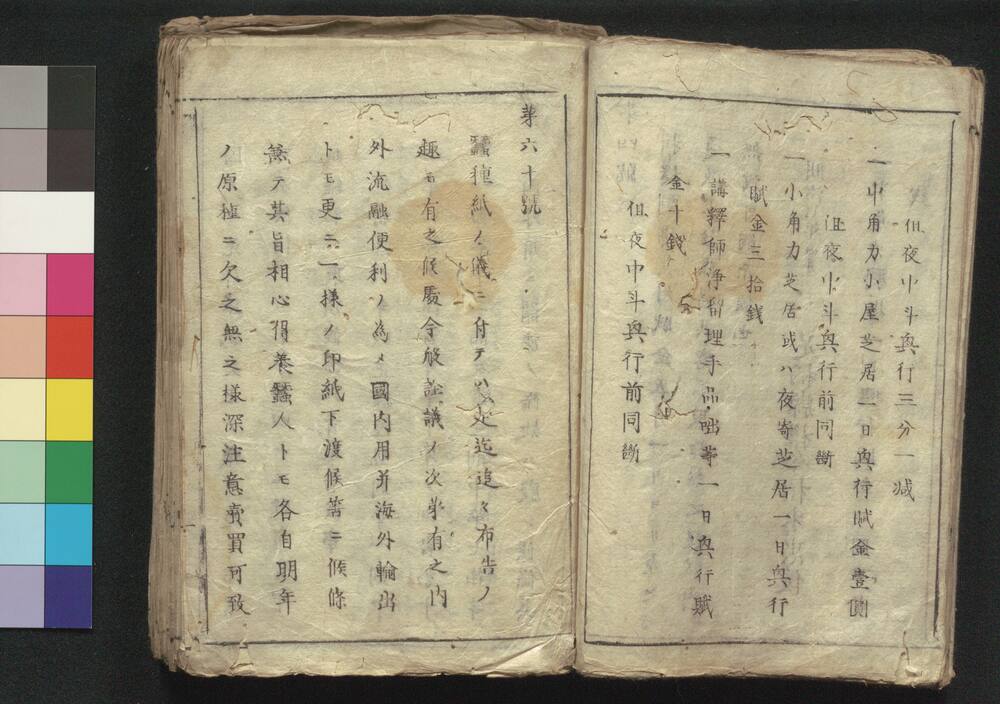 但夜中斗興行三分一減
一中角力小屋芝居一日興行賦金壹圓
但夜中斗興行前同斷
一小角力芝居或ハ夜寄芝居一日興行
賦金三拾錢
一講釋師浄瑠理手品咄等一日興行賦
金十錢
但夜中斗興行前同斷
第六十號
蠶種紙ノ儀ニ付テハ是迄追々布告ノ
趣モ有之候處今般詮議ノ次第有之内
外流融便利ノ為メ國内用并海外輸出
トモ更ニ一様ノ印紙下渡候筈ニ候條
無テ其旨相心得養蠶人トモ各自明年
ノ原種ニ欠乏無之様深注意賣買可致